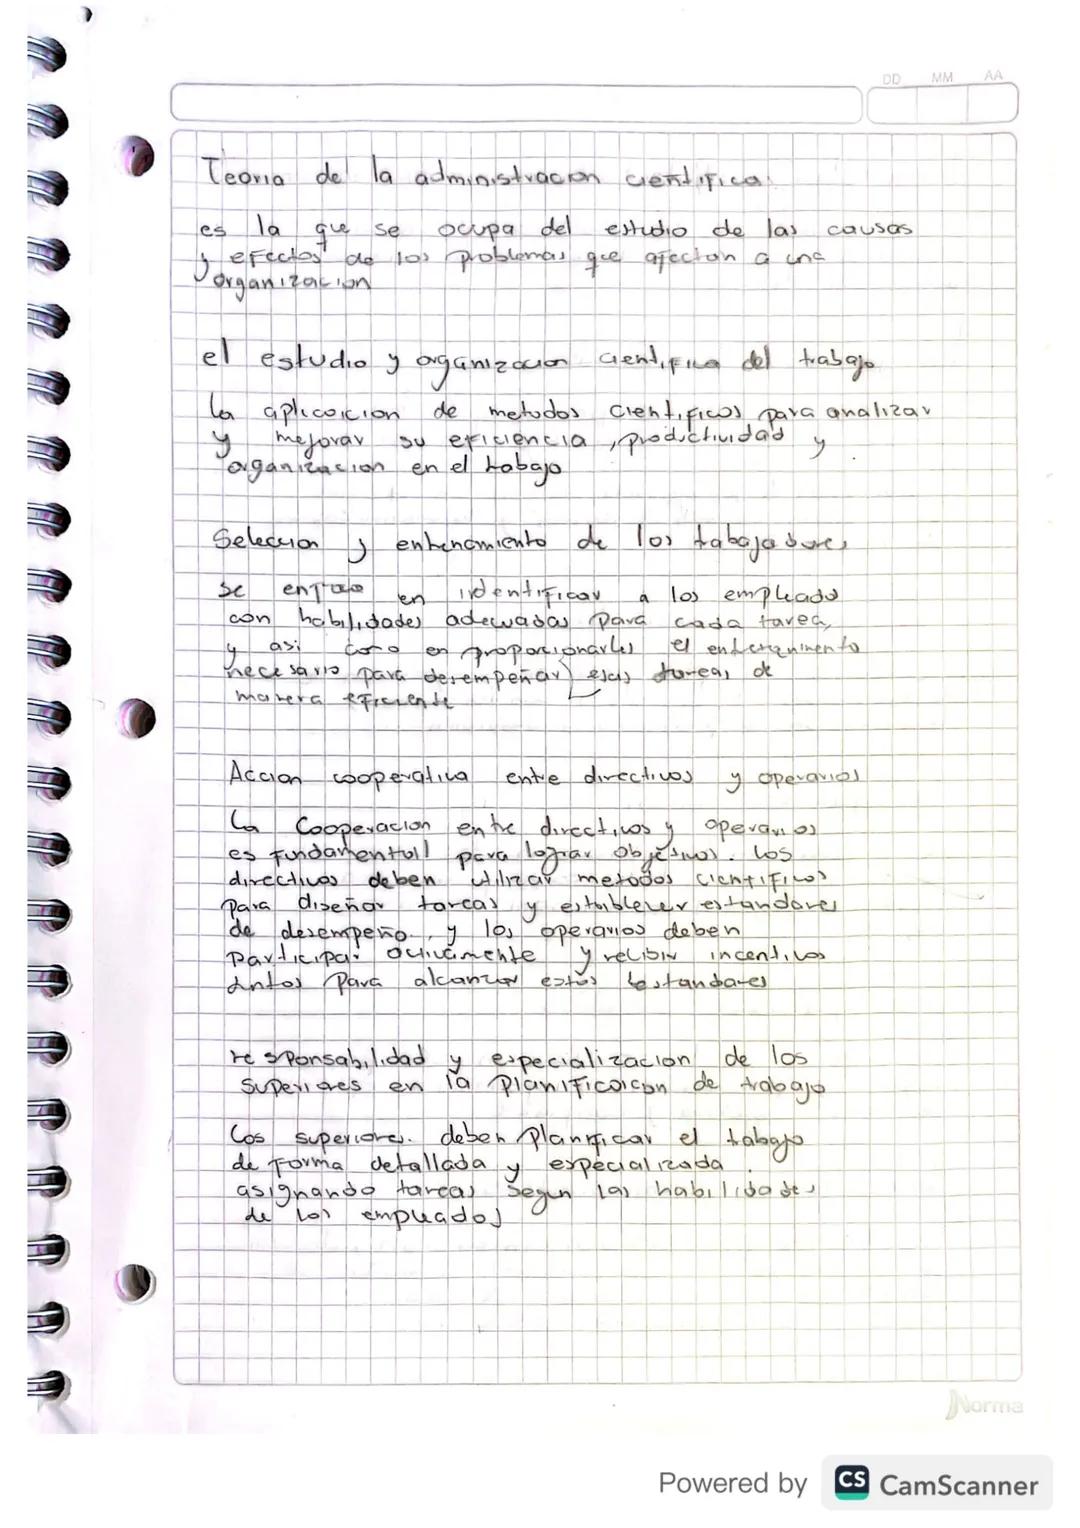 DD MM AA
Teoria de la administracion cientifica:
es la que se ocupa del estudio de las causas
y efectos de los problemas que afectan a una
organizacion
el estudio y organizacion cientifica del trabajo
La aplicacion de metodos cientificos para analizar
y mejorar su eficiencia, productividad y
organizacion en el trabajo
Seleccion y entrenamiento de los trabajadores
se en identificar a los empleado
con habilidades adecuadas para cada tarea,
y asi como en proporcionarles el entrenamiento
necesario para desempeñar esas tareas de
manera eficiente
Accion cooperativa entre directivos y operarios
La Cooperacion entre directivos y operarios
es fundamentall para lograr objetivos. los
directivos deben utilizar metodos cientificos
para diseñar tareas y establecer estandares
de desempeño., y los operarios deben
participar activamente y recibir incentivos
para alcanzar estos estandares
responsabilidad y especializacion de los
superiores en la planificacion de trabajo
Los superiores. deben planificar el trabajo
de forma detallada y especializada.
asignando tareas segun las habilidades
de los empleados
Norma
Powered by CS CamScanner